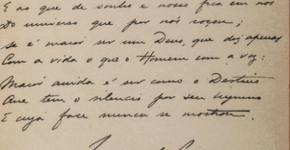 E ao que de sonho e nosso fica em nós
Do universo que por nós roçou;
Se é maior ser um Deus, que diz apenas
Com a vida o que o Homem com a voz:
Maior ainda é ser como o Destino
Que tem o silencio por seu hymno
E cuja face nunca se mostrou.